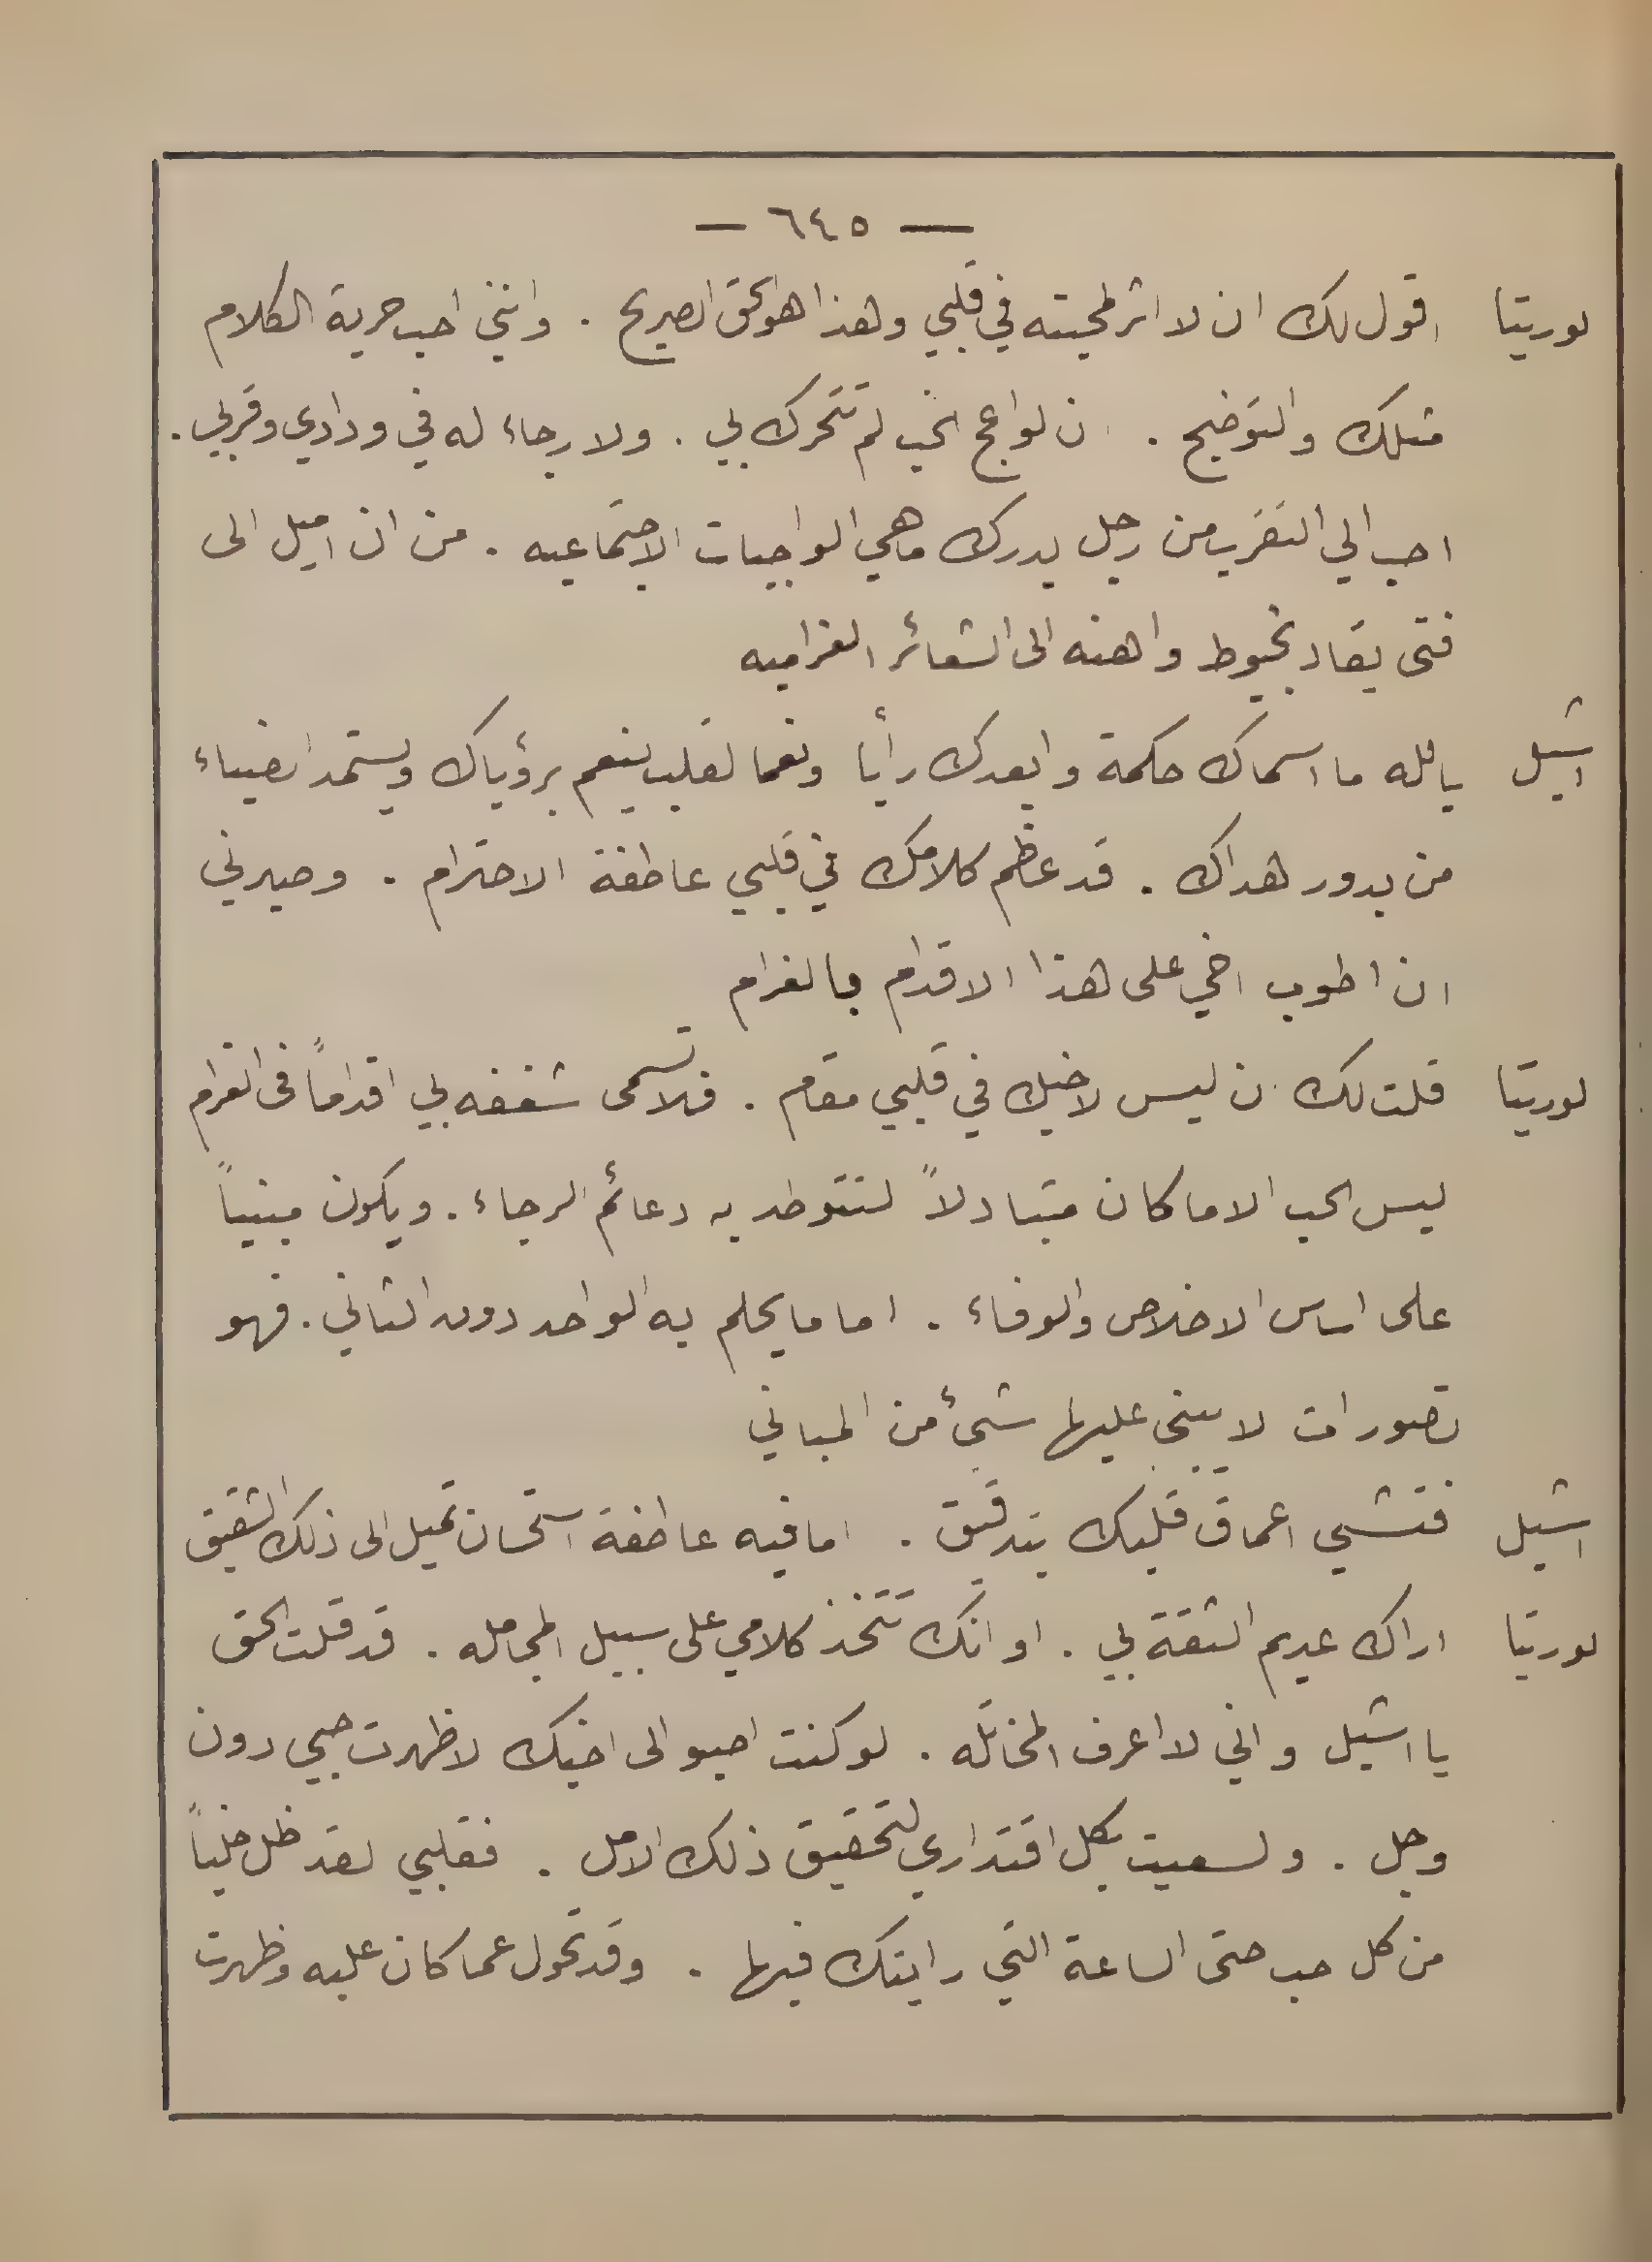 — ٦٤٥ —
لوريتا اقول لك ان لا اثر لمحبته في قلبي وهذا هو الحق الصريح . وانني احب حرية الكلام
مثلك والتوضيح . ان لواعج الحب لم تتحرك بي . ولا رجاء له في ودادي وقربي .
احب الي التقرب من رجل يدرك ما هي الواجبات الاجتماعيه . من ان اميل الى
فتى يقاد بخيوط واهنه الى الشعائر الغراميه
اشيل يالله ما اسماك حكمة وابعدك رأيا ونعما لقلب ينعم برؤياك ويستمد الضياء
من بدور هداك . قد عظم كلامك في قلبي عاطفة الاحترام . وصيرني
ان اطوب اخي على هذا الاقدام بالغرام
لوريتا قلت لك ان ليس لاخيك في قلبي مقام . فلا تسمى شغفه بي اقداماً في الغرام
ليس الحب الا ما كان متبادلاً لتتوطد به دعائم الرجاء . ويكون مبنياً
على اساس الاخلاص والوفاء . اما ما يحلم به الواحد دون الثاني . فهو
تصورات لا يبنى عليها شيئ من المباني
اشيل فتشي اعماق قلبك بتدقيق . اما فيه عاطفة استحسان تميل الى ذلك الشقيق
لوريتا اراك عديم الثقة بي . او انك تتخذ كلامي على سبيل المجامله . قد قلت الحق
يا اشيل واني لا اعرف المخاتله . لو كنت اصبو الى اخيك لاظهرت حبي دون
وجل . ولسعيت بكل اقتداري لتحقيق ذلك الامل . فقلبي لقد ظل خلياً
من كل حب حتى الساعة التي رايتك فيها . وقد تحول عما كان عليه وظهرت